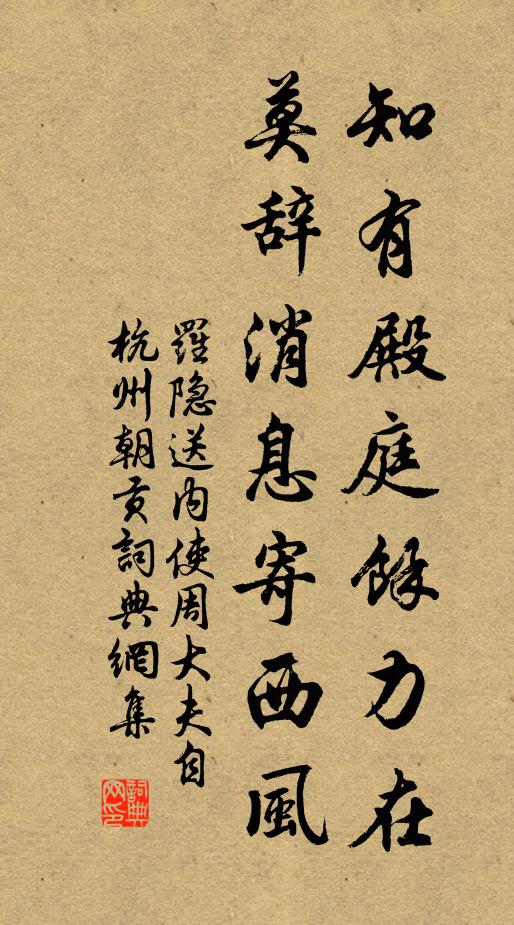 知有殿庭餘力在
莫辞消息寄西風
羅隐送内使周大夫自
杭州朝贡詞典網集
詞典
网印